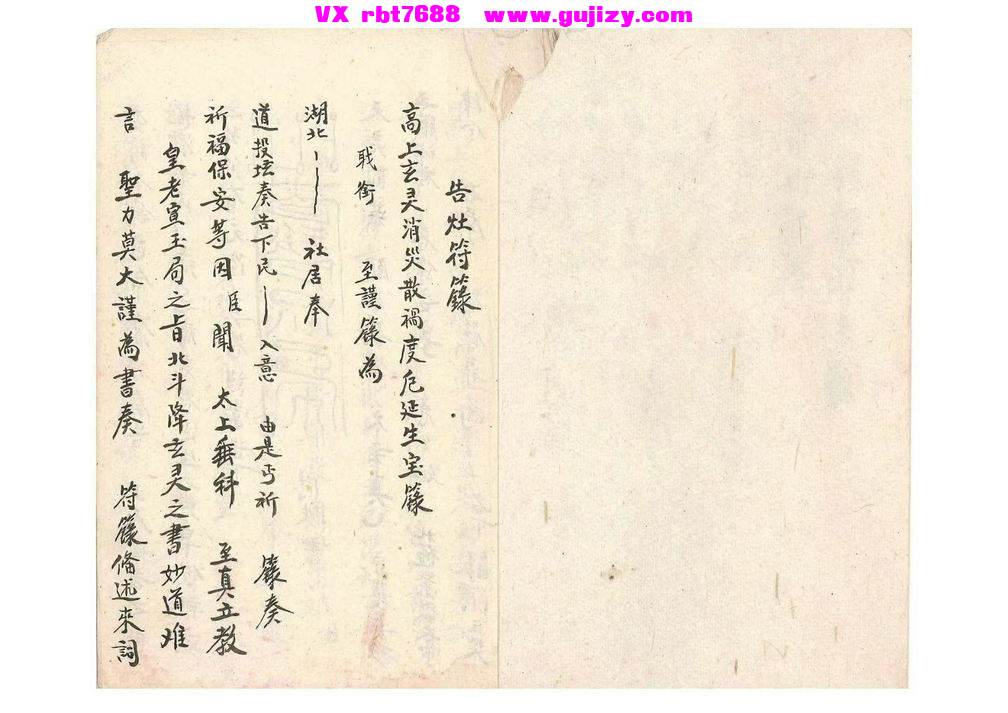 VX rbt7688 www.gujizy.com
告灶符籙
高上玄灵消災散禍度厄延生宝籙
戝銜 至謹籙為
湖北 社居奉
道投坛奏告下民 入意 由是丐祈 籙奏
祈福保安等因臣聞 太上垂科 至真立教
皇老宣玉局之㫖北斗降玄灵之書妙道难
言 聖力莫大謹為書奏 符籙偹述來詞